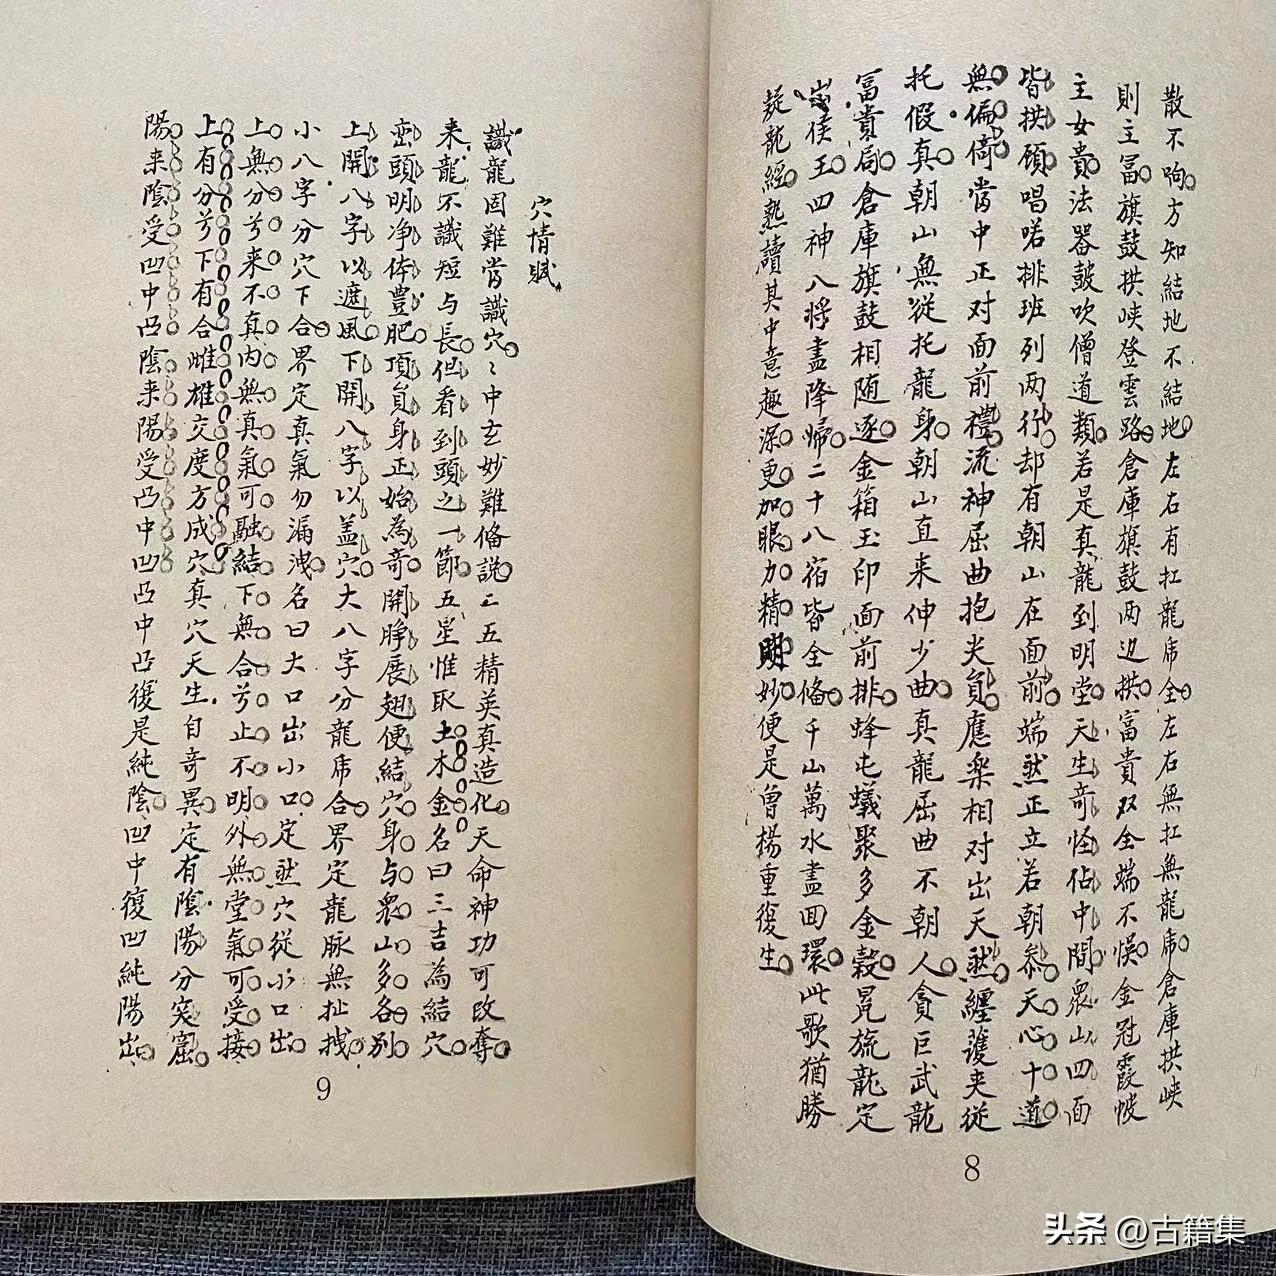 散不响方知結地不結地左右有扛龍席全左右無扛無龍席倉庫拱峡
則主冨旗鼓拱峡登雲路倉庫旗鼓两边拱富貴双全端不悞金冠霞帔
主女貴法器皷吹僧道類若是真龍到明堂天生竒怪佔中間眾山四面
皆拱顾唱喏排班列两行却有朝山在面前端然正立若朝叅天心十道
無偏倚當中正对面前禮流神屈曲抱尖負應楽相对出天然纒護夹從
托假真朝山無從托龍身朝山直来伸少曲真龍屈曲不朝人貪巨武龍
冨貴局倉庫旗鼓相随逐金箱玉印面前排蜂屯蟻聚多金穀晃旒龍定
侯王四神八将盡降歸二十八宿皆全俻千山萬水盡回環此歌猶勝
疑龍經熟讀其中意趣深更加眼力精明妙便是曾楊重復生
8
穴情賦
識龍固難當識穴〻中玄妙難俻説二五精英真造化天命神功可改奪
来龍不識短与長但看到頭之一節五星惟取土木金名曰三吉為結穴
巒頭明净体豊肥頂負身正始為竒開睁展翅便結穴身与衆山多各别
上開八字以遮風下開八字以盖穴大八字分龍席合界定龍脉無扯拽
小八字分穴下合界定真氣勿漏洩名曰大口出小口定然穴從小口出
上無分兮来不真内無真氣可融結下無合兮止不明外無堂氣可受接
上有分兮下有合雌雄交度方成穴真穴天生自竒異定有陰陽分突窟
陽来陰受凹中凸陰来陽受凸中凹凸中凸復是純陰凹中復凹純陽出
9
头条 @古籍集